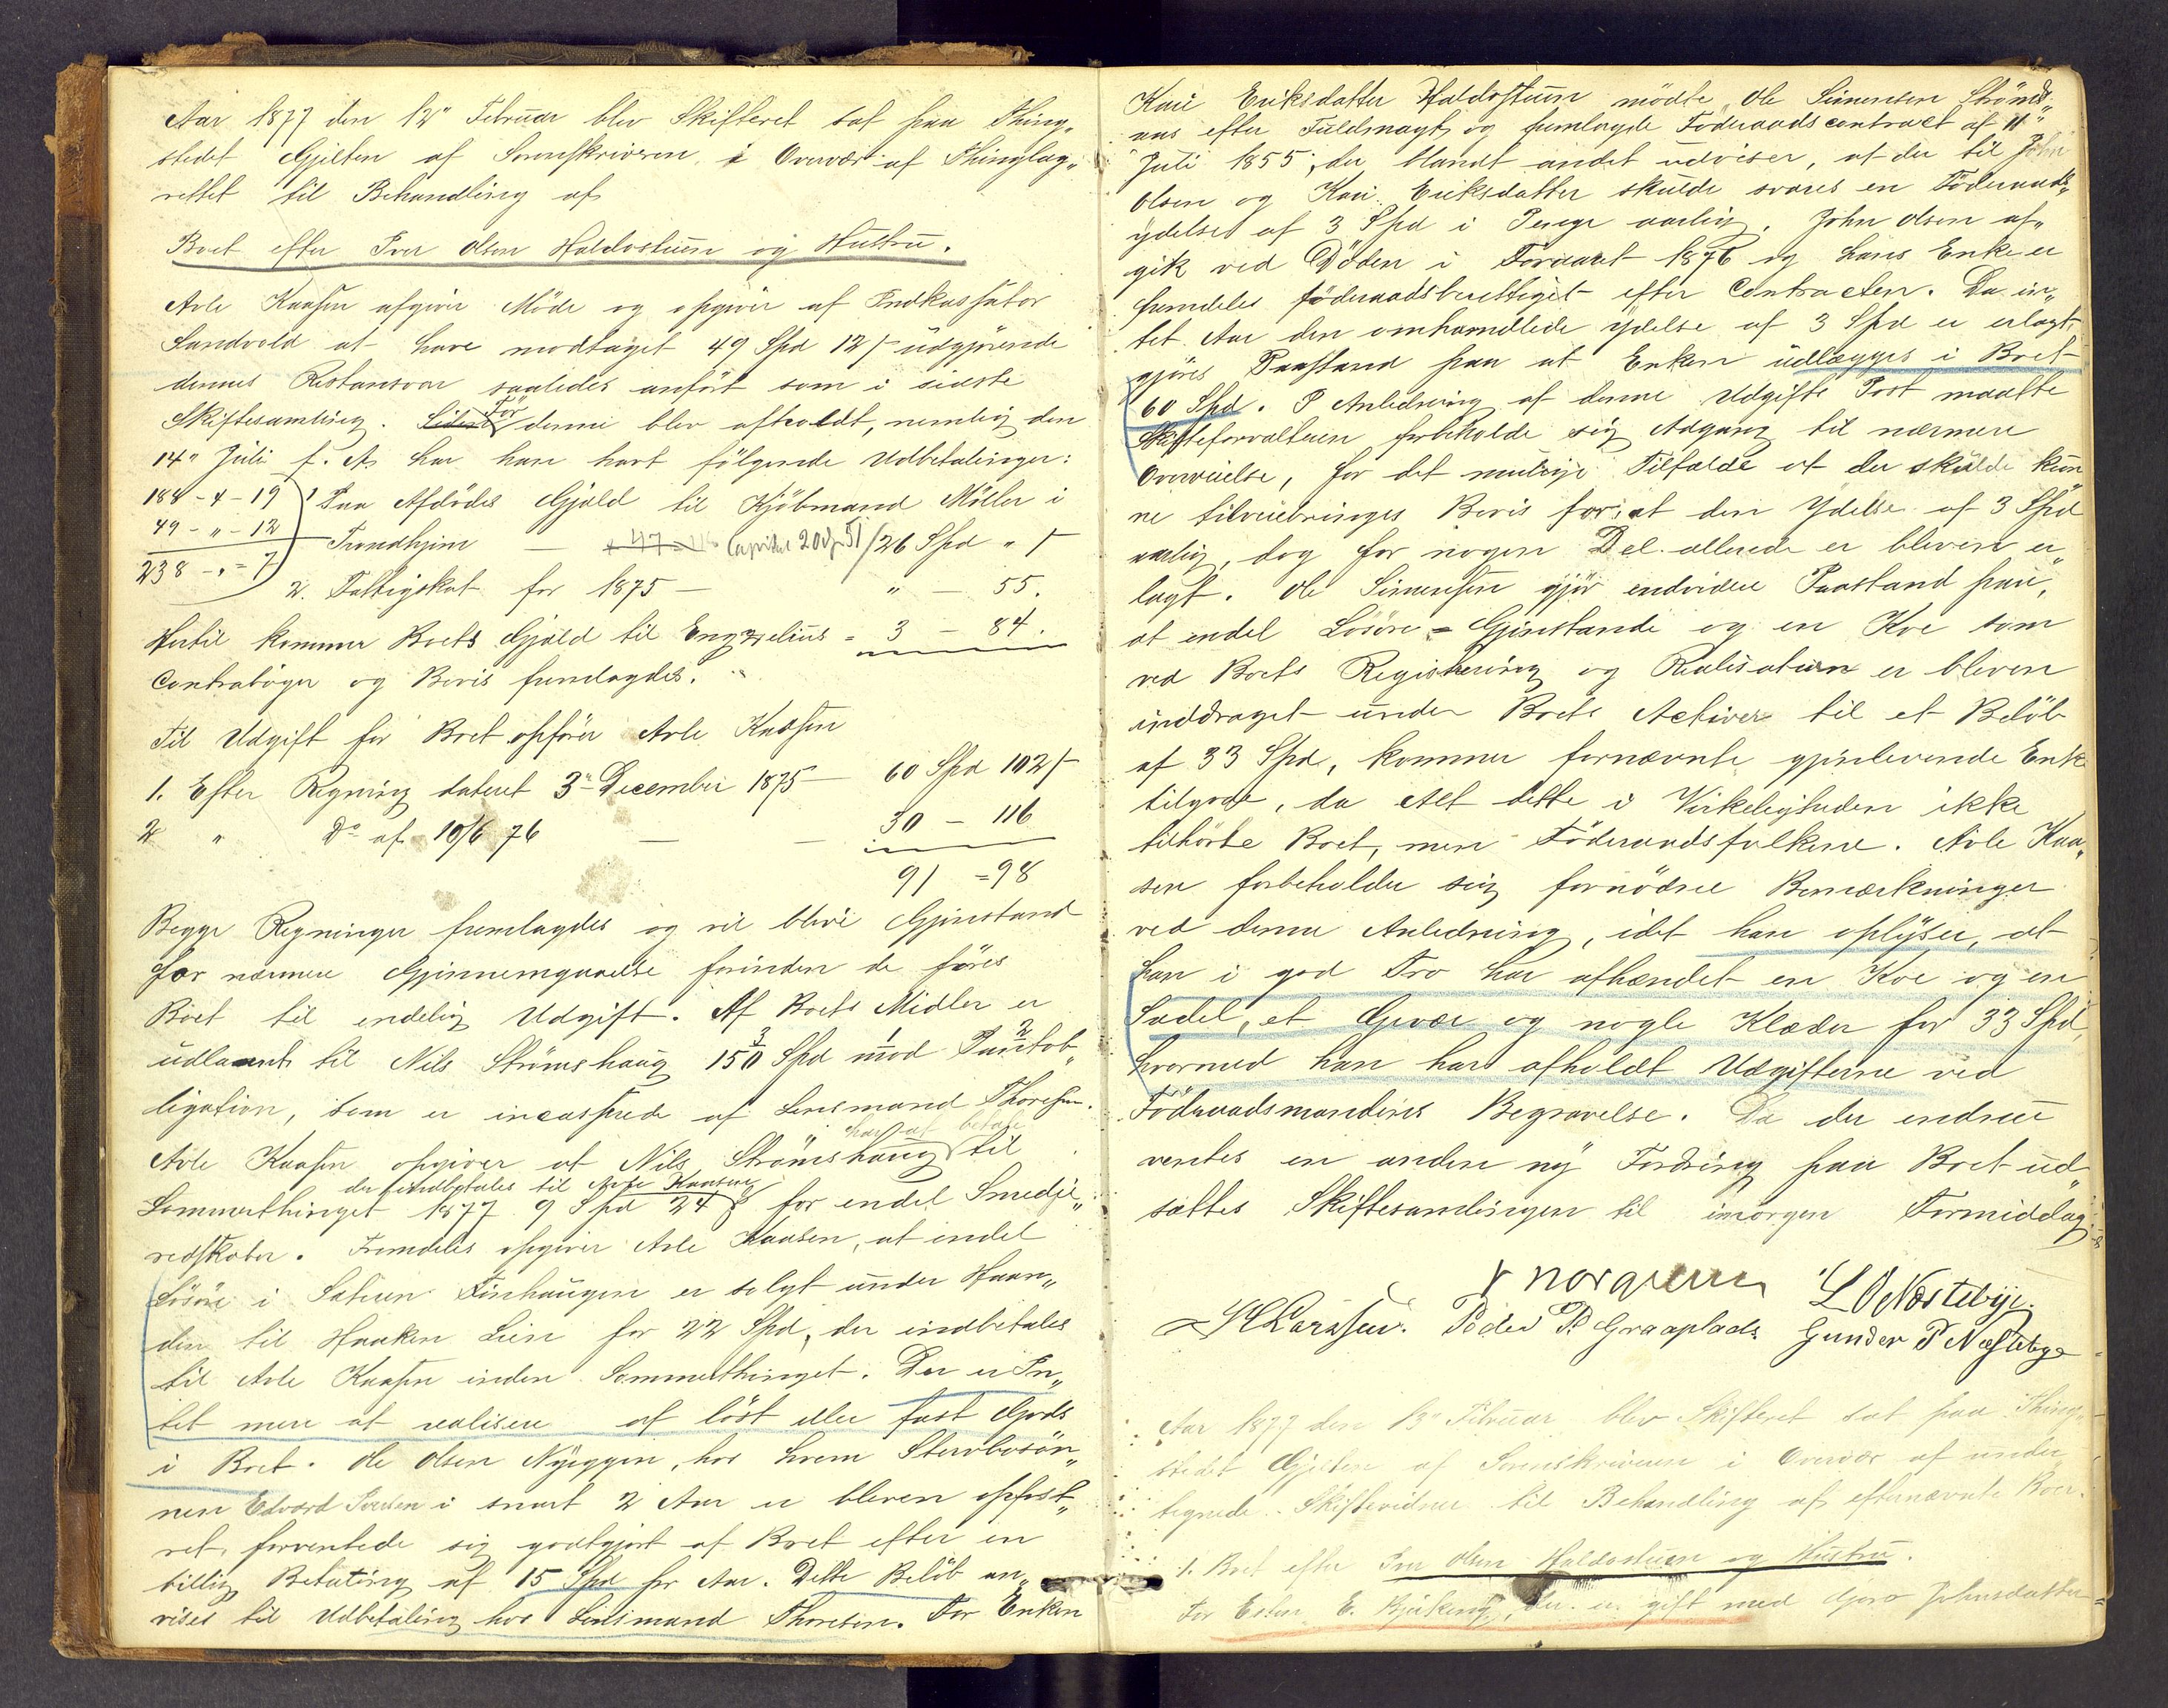 Aar 1877 den 12" Februar blev Skifteret sat paa Thing„
stedet Gjelten af Sorenskriveren i Overvær af Thinglag„
rettet til Behandling af
Boet efter Iver Olsen Haldostuen og Hustru.
Arle Kaasen afgiver Møde og opgiver af Indkassator
Sandvold at have modtaget 49 Spd 12 s udgjørende
dennes Restansvar saaledes anført som i sidste
Skiftesamling. Siden Før denne blev afholdt, nemlig den
14" Juli f. A. har han havt følgende Udbetalinger:
188 - 4 - 19 1 Paa Afdødes Gjæld til Kjøbmand Møller i
49 - " - 12 Trondhjem — 26 Spd " s
238 - " - 7
2. Fattigskat for 1875 — " — 55.
Hertil kommer Boets Gjæld til Engzelius = 3 — 84.
Contrabøger og Bevis fremlagdes.
Til Udgift for Boet opfører Arle Kaasen
1. Efter Regning dateret 3" December 1875 — 60 Spd 102 s
2 " Do af 10/6 76 — — 30 — 116
91 = 98
Begge Regninger fremlagdes og vil blive Gjenstand
for nærmere Gjennemgaaelse forinden de føres
Boet til endelig Udgift. Af Boets Midler er
udlaant til Nils Strømshaug 150 Spd mod Pantob„
ligation, som er incasserede af Lensmand Thoresen.
har at betale
Arle Kaasen opgiver at Nils Strømshaug til
der indbetales til Arle Kaasen
Sommerthinget 1877 9 Spd 24 s for endel Smedje„
redskaber. Fremdeles opgiver Arle Kaasen, at endel
Løsøre i Sæteren Finhaugen er solgt under Haan„
den til Haaken Lien for 22 Spd, der indbetales
til Arle Kaasen inden Sommerthinget. Der er In„
tet mere at realisere af løst eller fast Gods
i Boet. Ole Olsen Nyeggen, hos hvem Stervbosøn„
nen Edvard Iversen i snart 2 Aar er bleven opfost„
ret, forventede sig godtgjort af Boet efter en
billig Betaling af 15 Spd pr Aar. Dette Beløb an„
vises til Udbetaling hos Lensmand Thoresen. For Enken
Kari Eriksdatter Haldostuen mødte Ole Simensen Strøms„
aas efter Fuldmagt og fremlagde Føderaadscontract af 11"
Juli 1855, der blandt andet udviser, at der til John
Olsen og Kari Eriksdatter skulde svares en Føderaads„
ydelse af 3 Spd i Penge aarlig. John Olsen af„
gik ved Døden i Foraaret 1876 og hans Enke er
fremdeles føderaadsberettiget efter Contracten. Da in„
tet Aar den omhandlede Ydelse af 3 Spd er erlagt,
gjøres Paastand paa at Enken udlægges i Boet
60 Spd. I Anledning af denne Udgifts Post maatte
Skifteforvalteren forbeholde sig Adgang til nærmere
Overveielse, for det mulige Tilfælde at der skulde kun„
ne tilveiebringes Bevis for, at den Ydelse af 3 Spd
aarlig, dog for nogen Del allerede er bleven er„
lagt. Ole Simensen gjør endvidere Paastand paa,
at endel Løsøre=Gjenstande og en Koe som
ved Boets Registrering og Realisation er bleven
inddraget under Boets Activer til et Beløb
af 33 Spd, kommer fornævnte gjenlevende Enke
tilgode, da Alt dette i Virkeligheden ikke
tilhørte Boet, men Føderaadsfolkene. Arle Kaa„
sen forbeholder sig fornødne Bemærkninger
ved denne Anledning, idet han oplyser, at
han i god Tro har afhændet en Koe og en
Sadel, et Gevær og nogle Klæder for 33 Spd,
hvormed han har afholdt Udgifterne ved
Føderaadsmandens Begravelse. Da der endnu
ventes en anden ny Fordring paa Boet ud„
sattes Skiftesamlingen til imorgen Formiddag.
L O Næstebye
H Larssen. Peder P. Graaplads Gunder P Næstebye
Aar 1877 den 13" Februar blev Skifteret sat paa Thing„
stedet Gjelten af Sorenskriveren i Overvær af under„
tegnede Skiftevidner til Behandling af efternævnte Boer.
1. Boet efter Iver Olsen Haldostuen og Hustru.
For Esten E. Bjøkeng, der er gift med Goro Johnsdatter